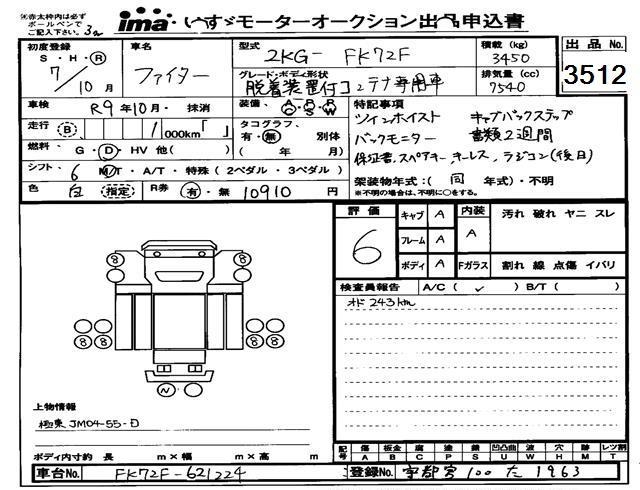 ※赤太枠内は必ず
ボールペンで
ご記入下さい。
ima いすゞモーターオークション出品申込書
初度登録 S・H・R 7/10月
車名 ファイター
型式 2KG- FK72F
積載(kg) 3450
出品No. 3512
グレード・ボディ形状 脱着装置付コンテナ専用車
排気量(cc) 7540
車検 R9年10月・抹消
装備
特記事項
ツインホイスト キャブバックステップ
バックモニター 書類2週間
保証書、スペアキー キーレス、ラジコン(後日)
走行 B 000km「 」
タコグラフ 有・無 別体 ( 年 月)
燃料 G・D・HV 他( )
シフト 6 M/T・A/T・特殊(2ペダル・3ペダル)
色 白 (指定) R券 有・無 10910円
架装物年式:( 同 年式)・不明
※不明の場合は、不明に○をする。
評価 6
キャブ A
フレーム A
ボディ A
内装 A 汚れ 破れ ヤニ スレ
Fガラス 割れ 線 点傷 イバリ
検査員報告 A/C( ✓ ) B/T( )
オド 243km
8 8
8 8 8 8
N
上物情報
極東 JM04-55-日
ボディ内寸約 長 m×幅 m×高 m
記号 傷A 板金B 腐C 塗P 錆S 凹凸曲U 波W 穴H 跡M レツ割T
車台No. FK72F-621224
登録No. 宇都宮 100 た 1963